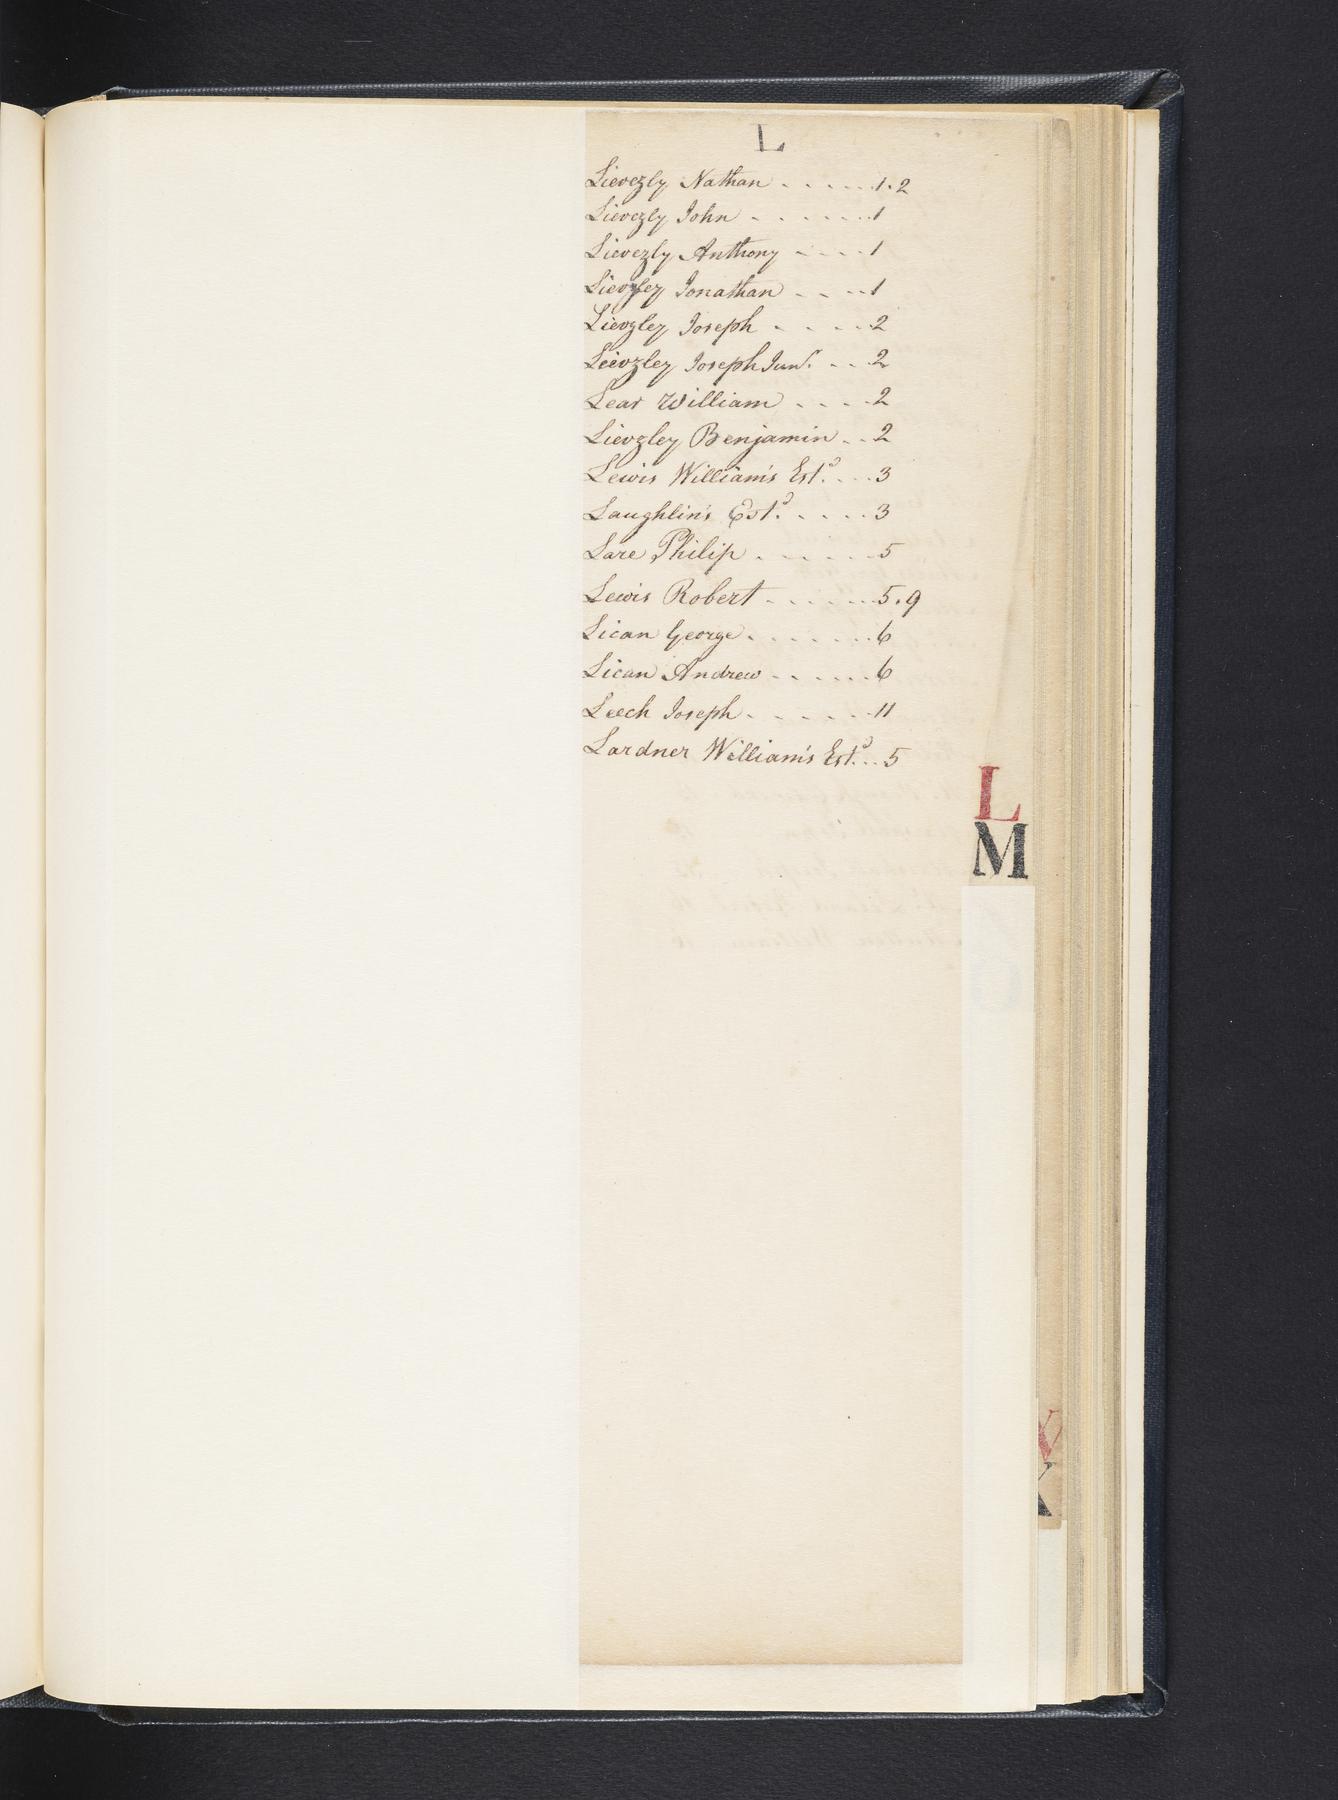 L
Lievezly Nathan . . . . . . 1. 2
Lievezly John . . . . . . . 1
Lievezly Anthony . . . . 1
Lievzley Jonathan . . . . 1
Lievzley Joseph . . . . . 2
Lievzley Joseph Junr. . . . 2
Lear William . . . . 2
Lievzley Benjamin . . 2
Lewis William's Estd. . . . 3
Laughlin's Estd. . . . . 3
Lare Philip . . . . . . 5
Lewis Robert . . . . . . 5. 9
Lican George . . . . . . . 6
Lican Andrew . . . . . . 6
Leech Joseph . . . . . . 11
Lardner William's Estd. . . 5
L
M